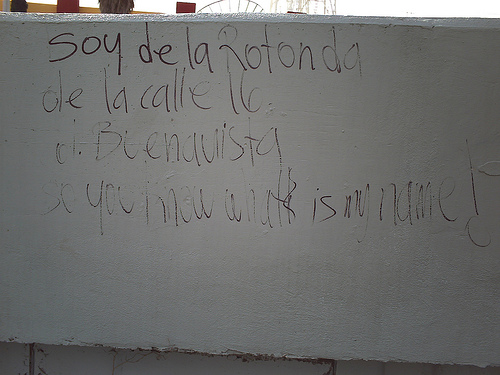 Soy de la Rotonda
de la calle 16.
cl. Buenavista
so you know what is my name!